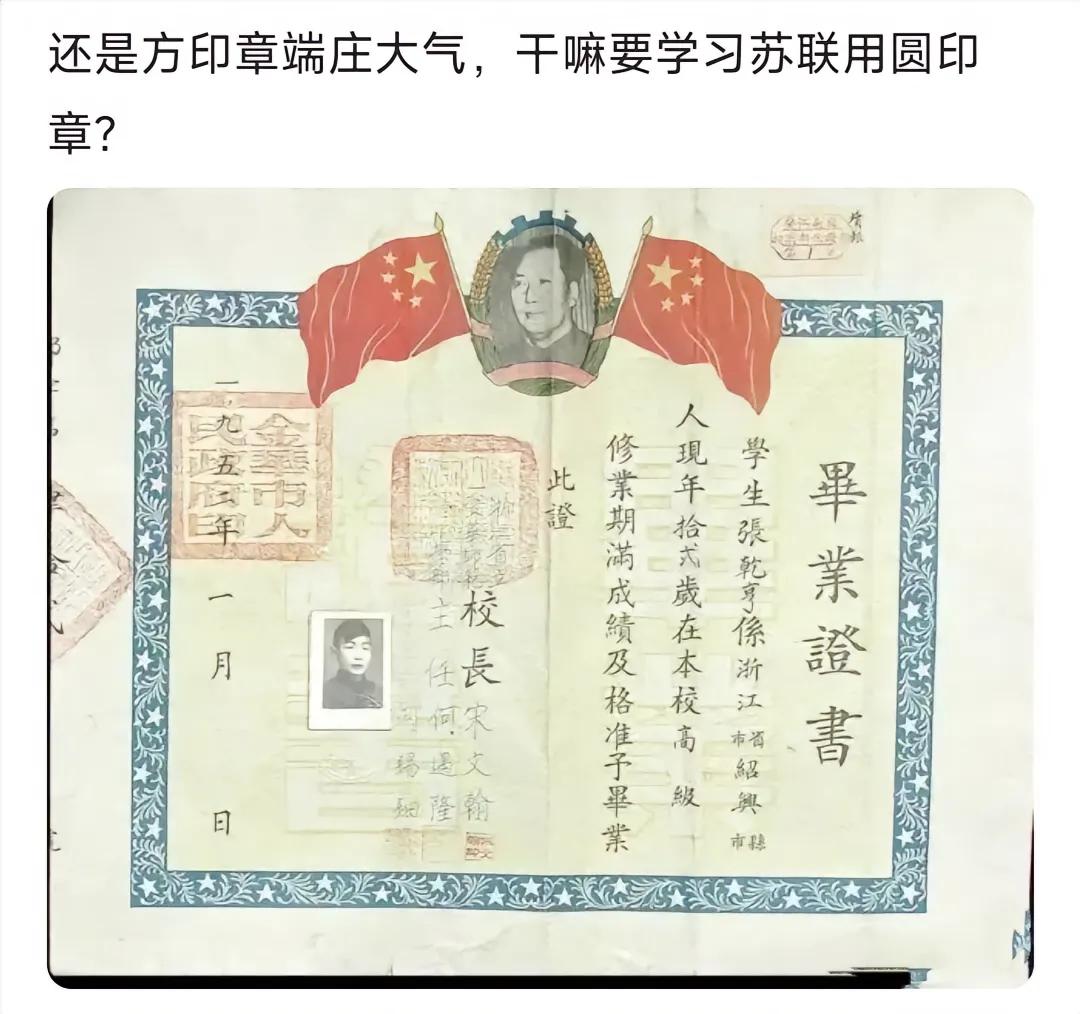 还是方印章端庄大气，干嘛要学习苏联用圆印
章？
畢業證書
學生張乾亨係浙江省市紹興縣市
人現年拾弍歲在本校高級
修業期滿成績及格准予畢業
此證
校長宋文翰
主任何遇隆
一九五二年一月日
金華市人
民政府印